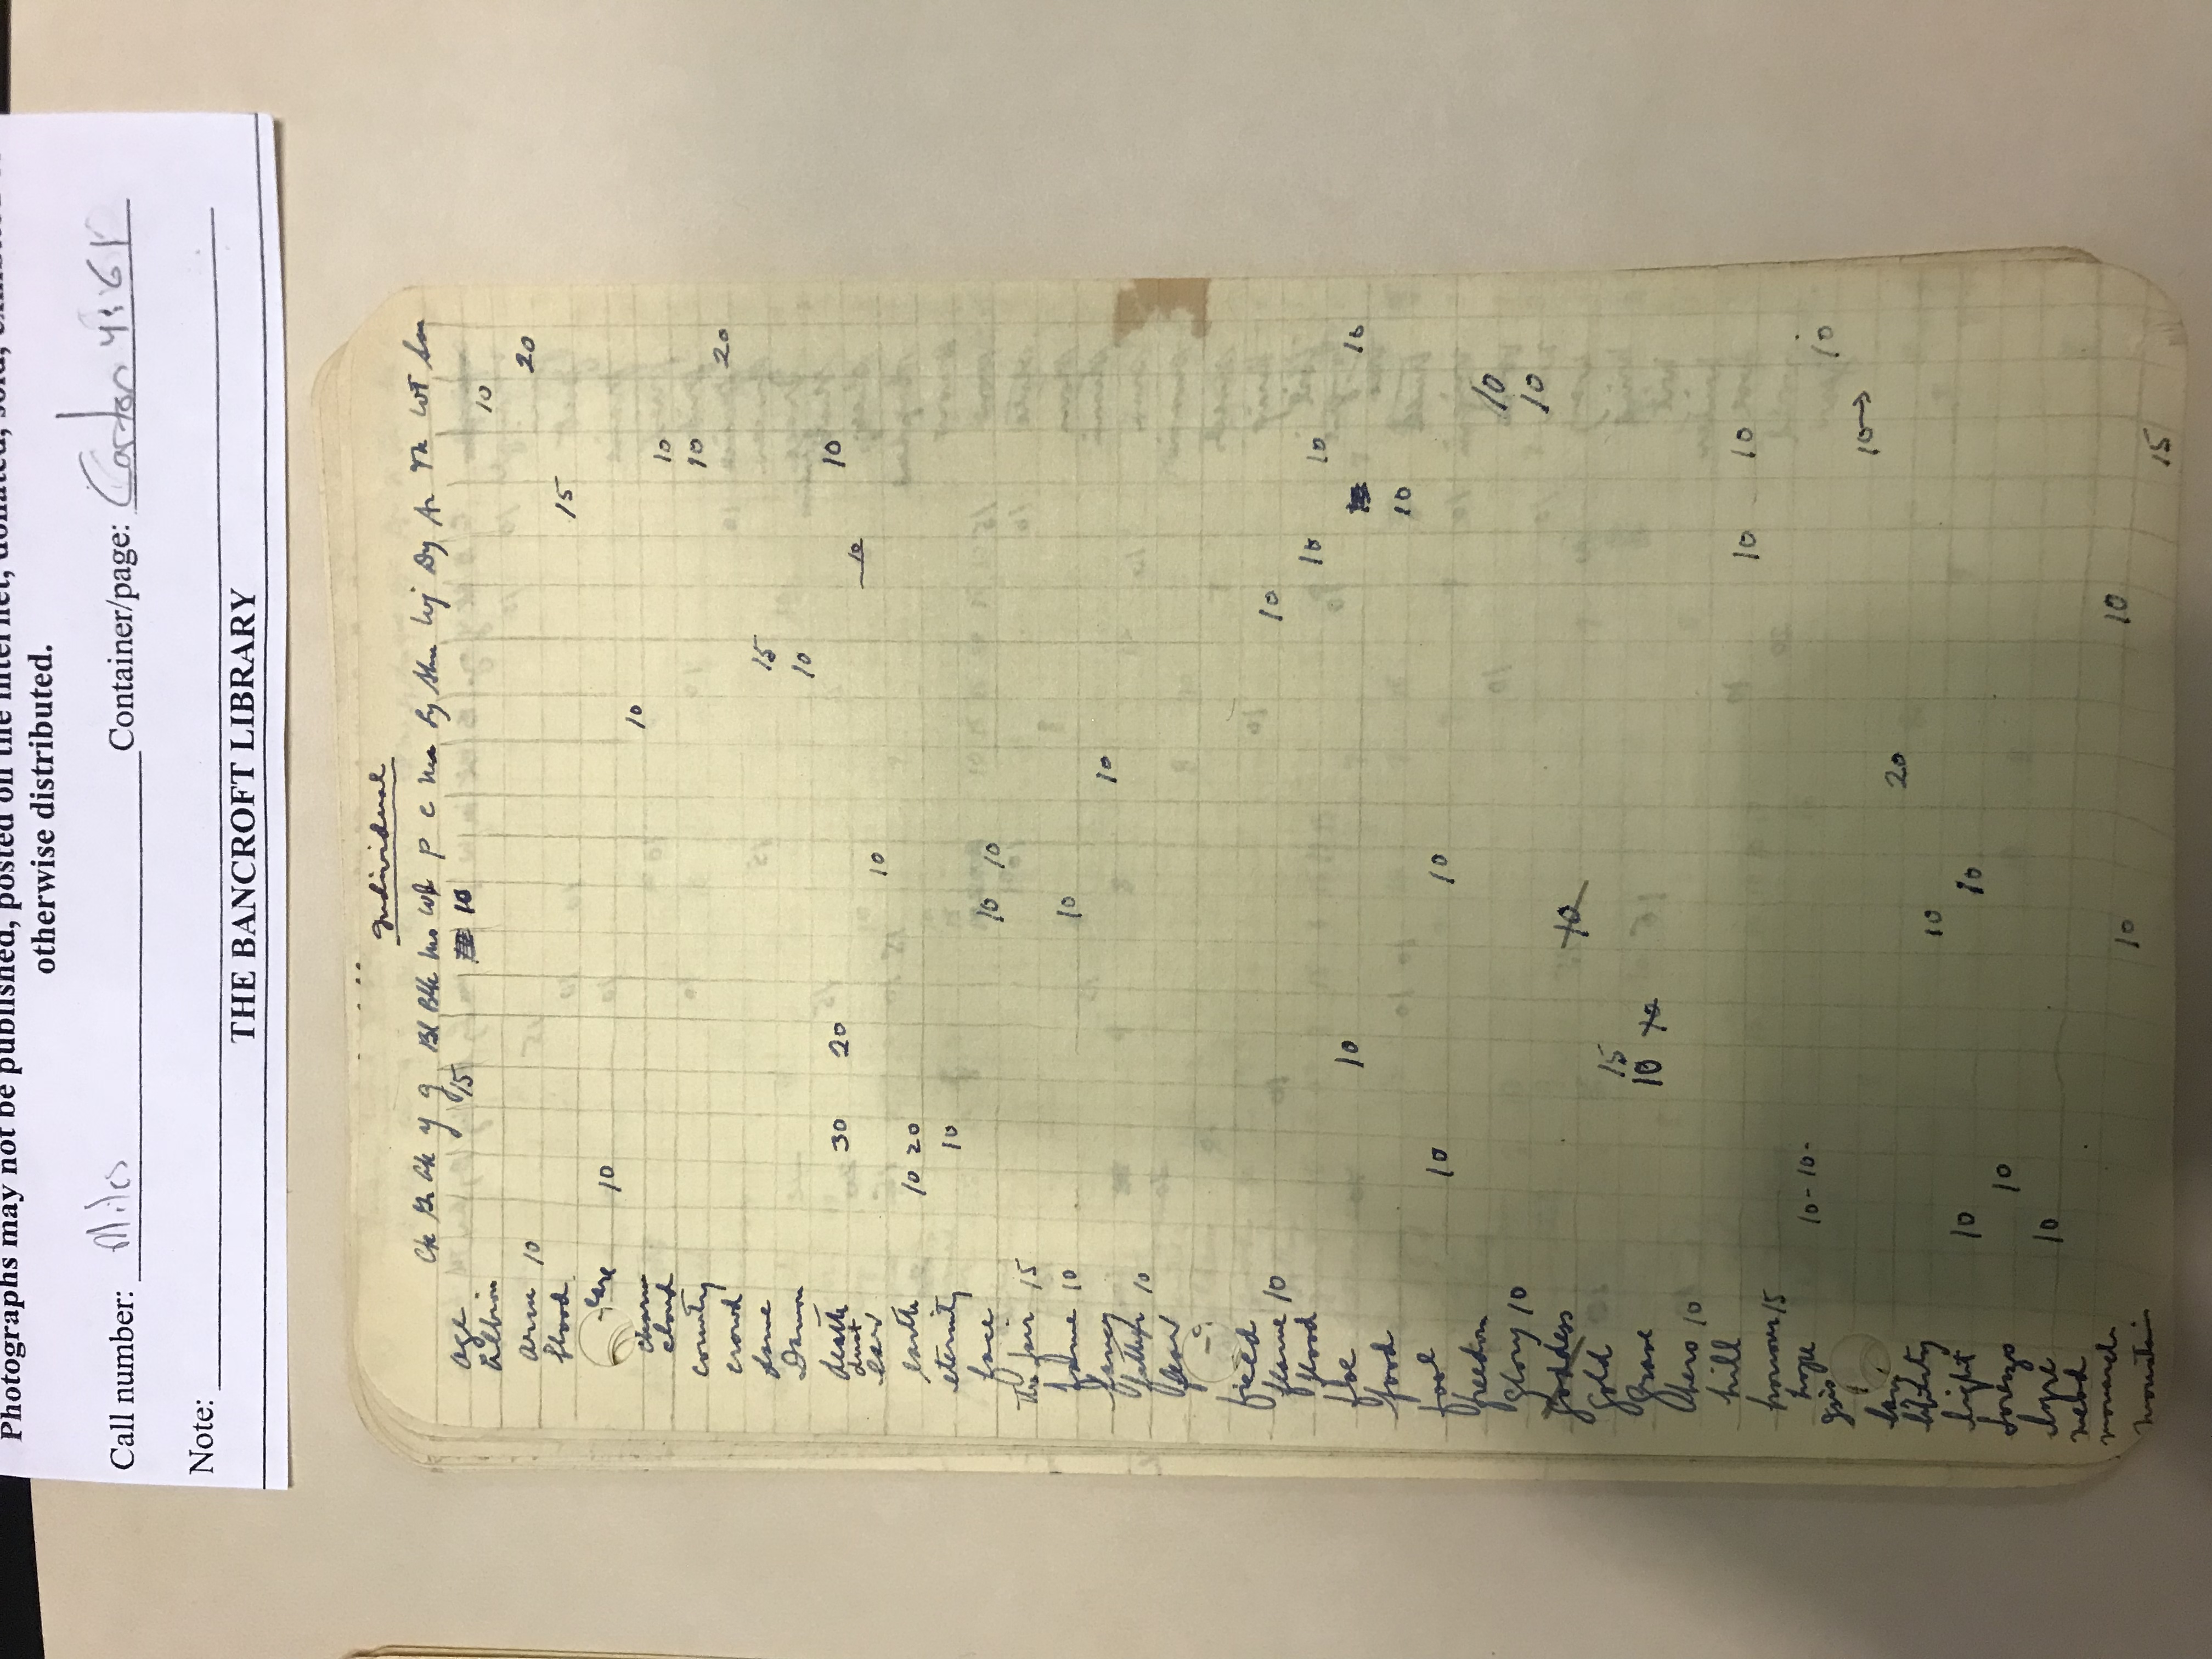 Photographs may not be published, posted on the internet, donated, sold, exhibited or
otherwise distributed.
Call number: Miles Container/page: Carton 4:61
Note:
THE BANCROFT LIBRARY
Individual
Gr y g Bl Blk Mo P C Sy Dy Ar Th WT
age 15 10
Albion 10
arm 10 20
blood 15
care 10
charm 10
cloud 10
country 10
crowd 20
15
Damon 10
death 30 20 10
dust 10
ear 10
earth 10 20
eternity 10
face 10 10
The fair 15
fame 10 10
fancy 10
father 10
fear
flame 10 10
flood 10 10
foe 10 10
food 10
fool 10 10
freedom 10
glory 10 10
goddess 10
gold 15
grave 10 10
hero 10
hill 10 10
honour 15
hope 10- 10- 10
Isis 10→
20
liberty 10
light 10 10
Lorenzo 10
lyre 10
mead
monarch 10 10
mountain 15